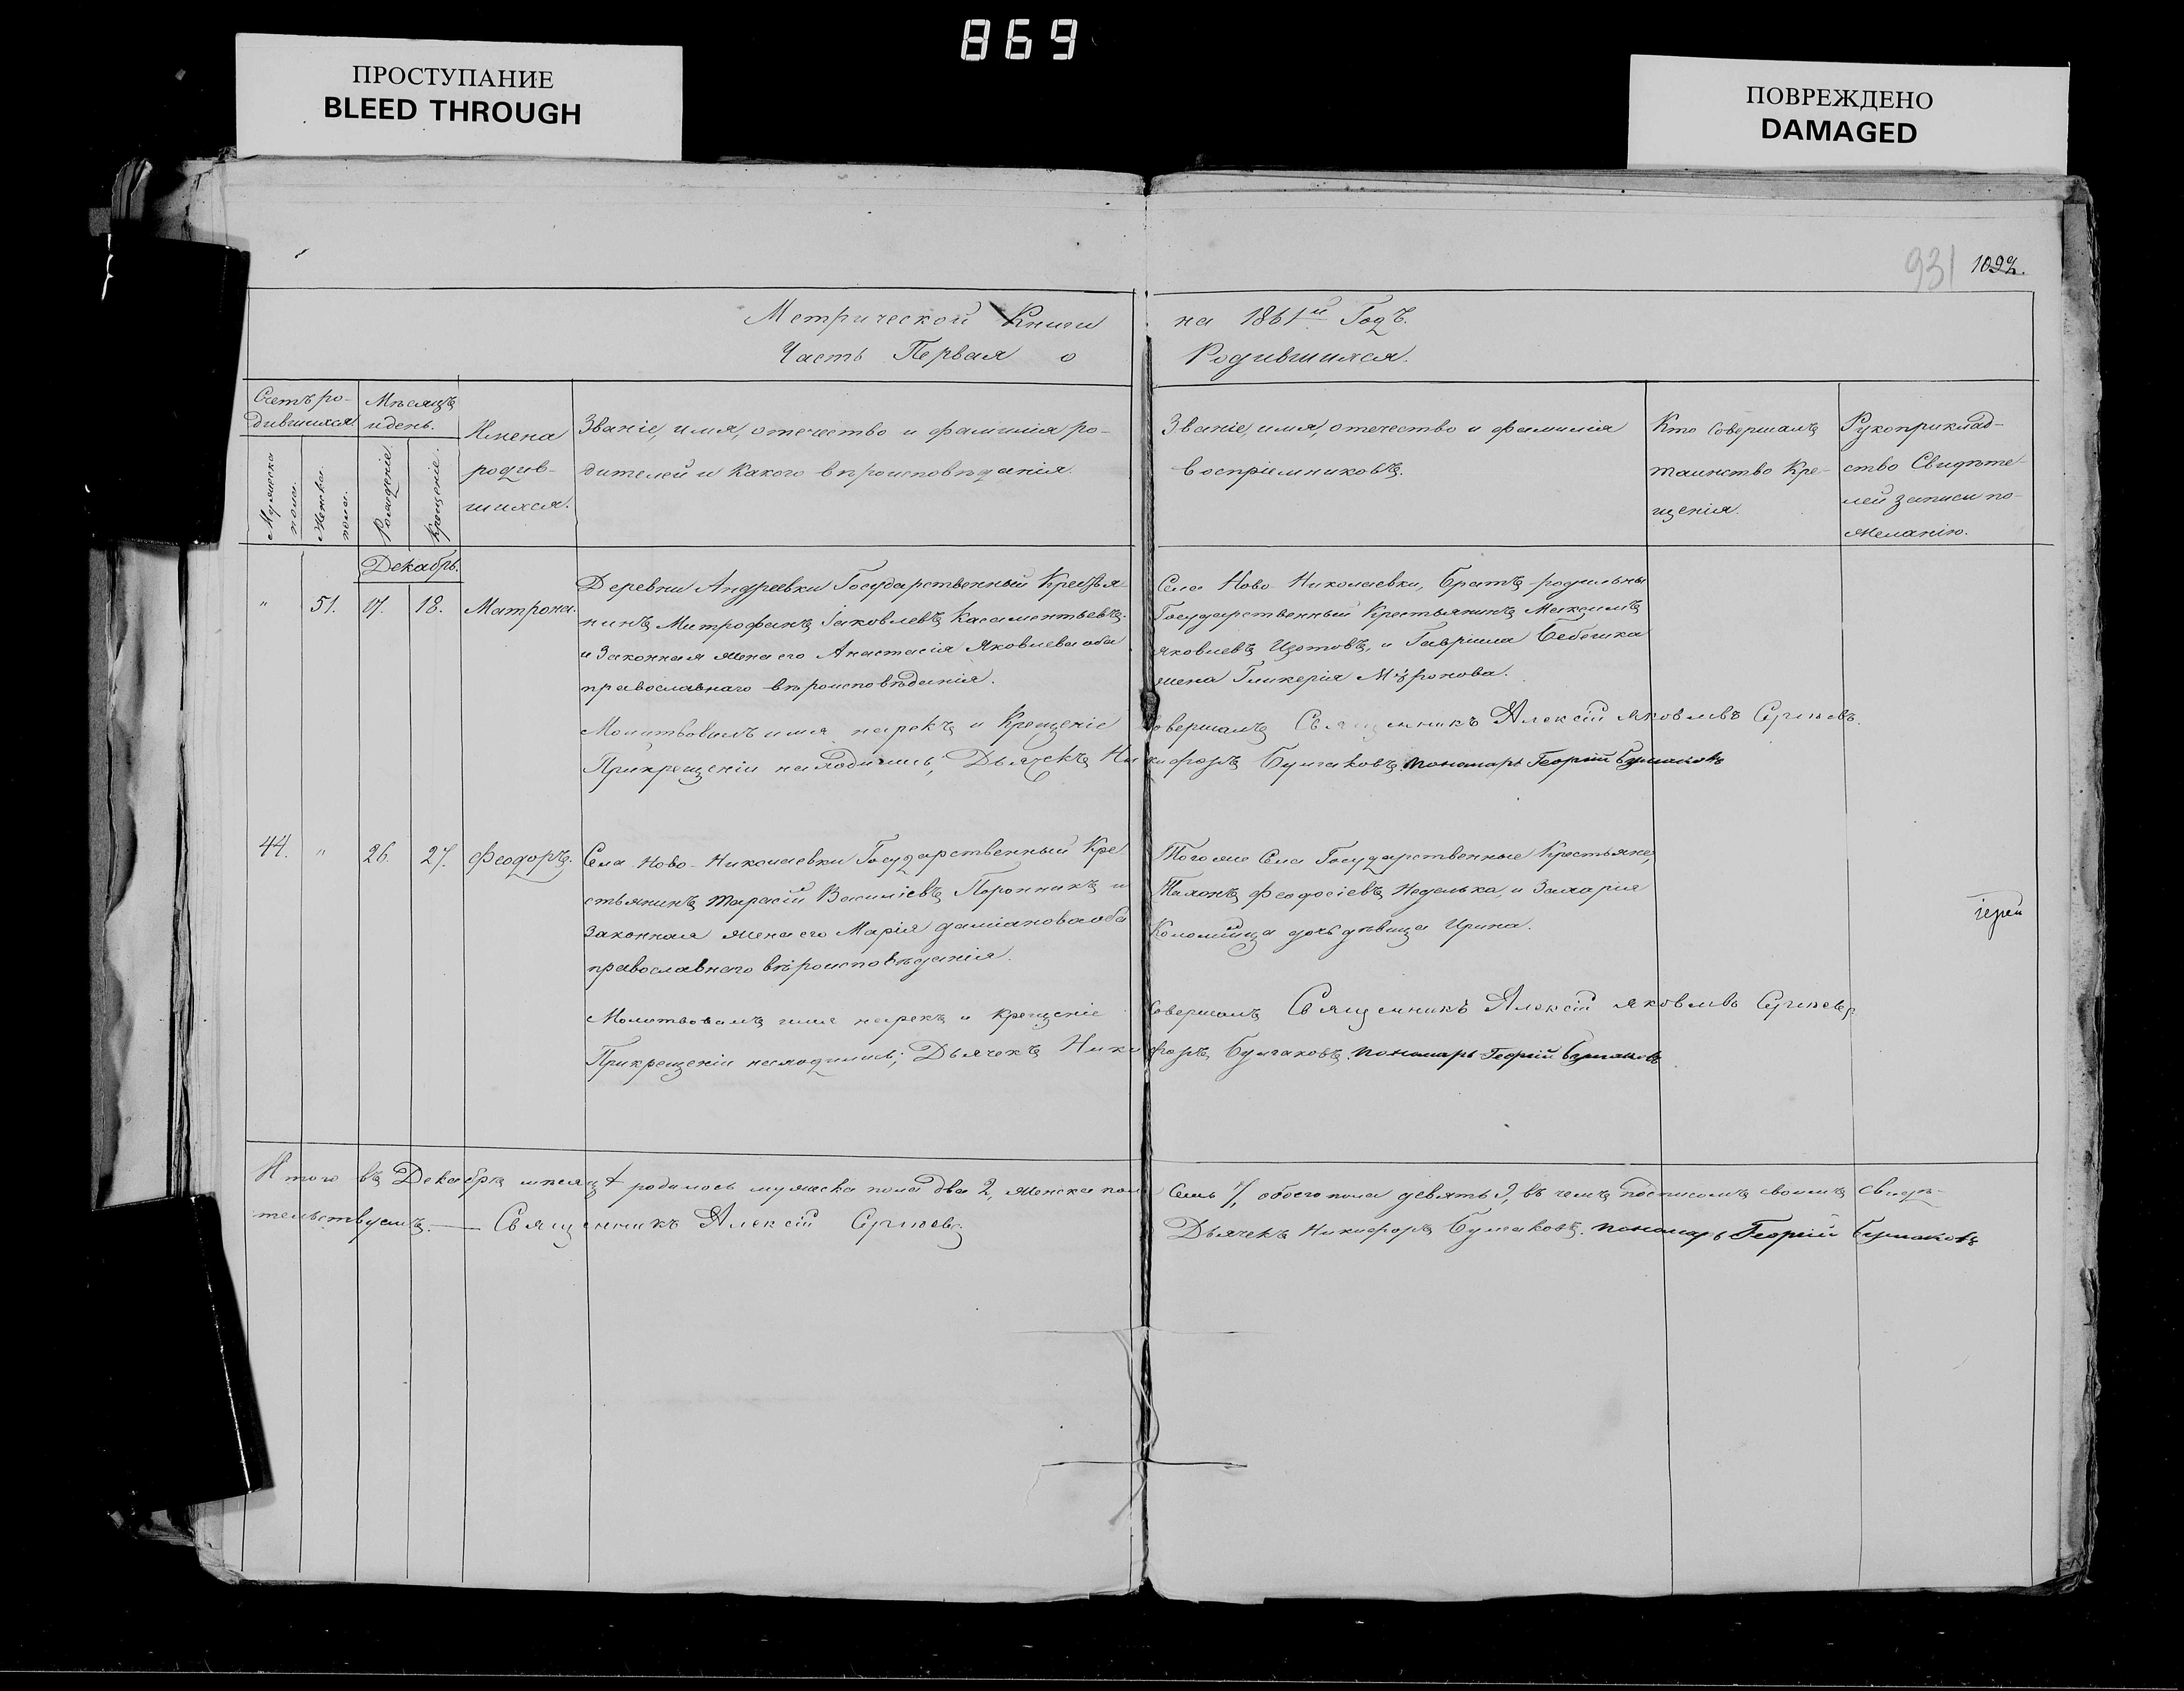 869
ПРОСТУПАНИЕ
BLEED THROUGH
ПОВРЕЖДЕНО
DAMAGED
931 1092.
Метрической Книги на 1861й Годъ.
Часть Первая о Родившихся.
Счетъ ро-
дившихся.
Мужеска
пола.
Женска
пола.
Мѣсяцъ
и день.
Рожденіе.
Крещеніе.
Имена
родив-
шихся.
Званіе, имя, отечество и фамилія ро-
дителей и какого вѣроисповѣданія.
Званіе, имя, отечество и фамилія
воспріемниковъ.
Кто совершалъ
таинство Кре-
щенія.
Рукоприклад-
ство Свидѣте-
лей записи по-
желанію.
Декабрь.
" 51. 17. 18. Матрона.
Деревни Андреевки Государственный Крестья-
нинъ Митрофанъ Іаковлевъ
и Законная жена его Анастасія Яковлева оба
православнаго вѣроисповѣданія.
Села Ново-Николаевки,
Государственный Крестьянинъ Максимъ
Яковлевъ Изотовъ, и Гавріила
жена Гликерія Мѵронова.
Молитвовалъ имя нарекъ и Крещеніе совершалъ Священникъ Алексій Яковлевъ
При крещеніи находились; Дьячекъ Никифоръ Булгаковъ. пономарь Георгій Булгаковъ
44. " 26. 27. Феодоръ.
Села Ново-Николаевки Государственный Кре-
стьянинъ Тарасій Василіевъ и
Законная жена его Марія Даміанова оба
православнаго вѣроисповѣданія.
Того же Села Государственные Крестьяне,
Феодосіевъ Неделька, и Захарія
Коломійца дочь дѣвица Ирина.
іерей
Молитвовалъ имя нарекъ и крещеніе совершалъ Священникъ Алексій Яковлевъ
При крещеніи находились; Дьячекъ Никифоръ Булгаковъ. пономарь Георгій Булгаковъ
Итого въ Декабрѣ мѣсяцѣ родилось мужеска пола два 2, женска пола Семь 7, обоего пола девять 9, въ чемъ подписомъ своимъ свидѣ-
тельствуемъ. — Священникъ Алексій
Дьячекъ Никифоръ Булгаковъ. пономарь Георгій Булгаковъ